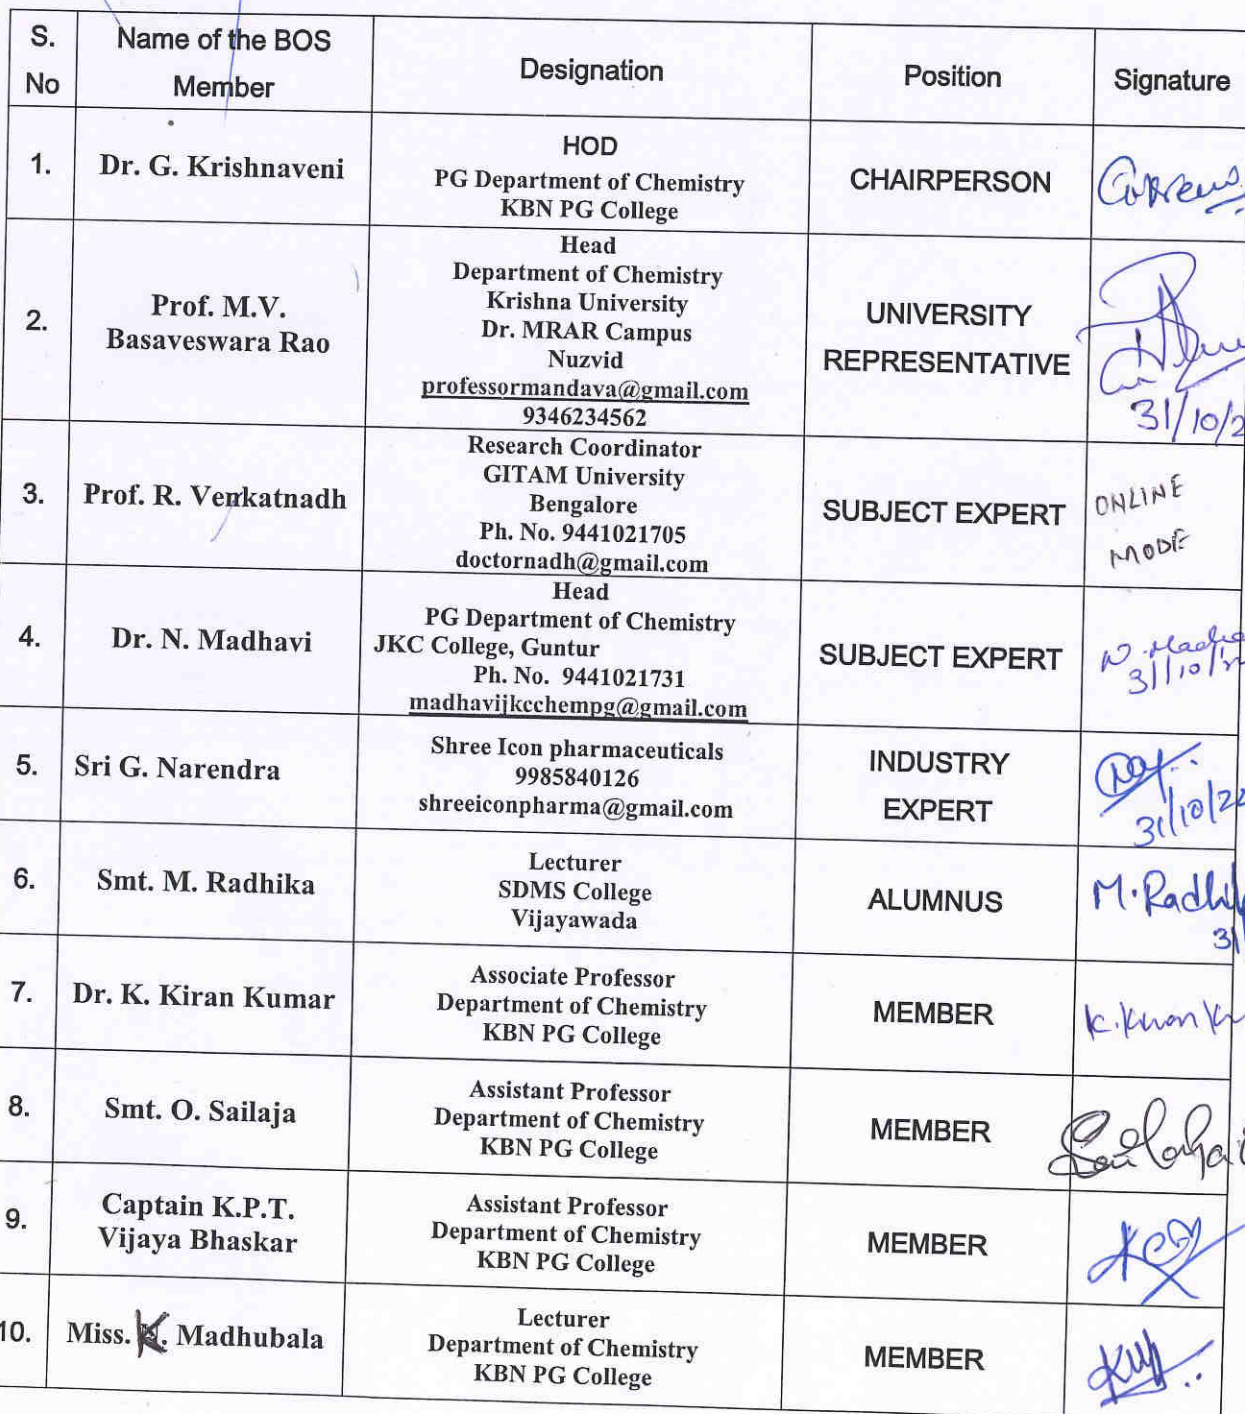 S. No
Name of the BOS Member
Designation
Position
Signature
1.
Dr. G. Krishnaveni
HOD
PG Department of Chemistry
KBN PG College
CHAIRPERSON
2.
Prof. M.V.
Basaveswara Rao
Head
Department of Chemistry
Krishna University
Dr. MRAR Campus
Nuzvid
professormandava@gmail.com
9346234562
UNIVERSITY
REPRESENTATIVE
31/10/2
3.
Prof. R. Venkatnadh
Research Coordinator
GITAM University
Bengalore
Ph. No. 9441021705
doctornadh@gmail.com
SUBJECT EXPERT
ONLINE
MODE
4.
Dr. N. Madhavi
Head
PG Department of Chemistry
JKC College, Guntur
Ph. No. 9441021731
madhavijkcchempg@gmail.com
SUBJECT EXPERT
N. Madha
31/10/2
5.
Sri G. Narendra
Shree Icon pharmaceuticals
9985840126
shreeiconpharma@gmail.com
INDUSTRY
EXPERT
31/10/22
6.
Smt. M. Radhika
Lecturer
SDMS College
Vijayawada
ALUMNUS
M. Radhi
31
7.
Dr. K. Kiran Kumar
Associate Professor
Department of Chemistry
KBN PG College
MEMBER
K. Kiran K
8.
Smt. O. Sailaja
Assistant Professor
Department of Chemistry
KBN PG College
MEMBER
9.
Captain K.P.T.
Vijaya Bhaskar
Assistant Professor
Department of Chemistry
KBN PG College
MEMBER
10.
Miss. K. Madhubala
Lecturer
Department of Chemistry
KBN PG College
MEMBER